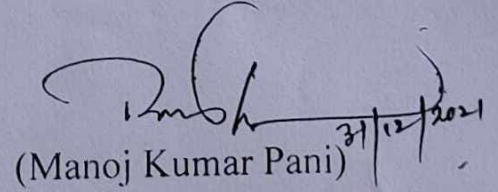 31/12/2021
(Manoj Kumar Pani)